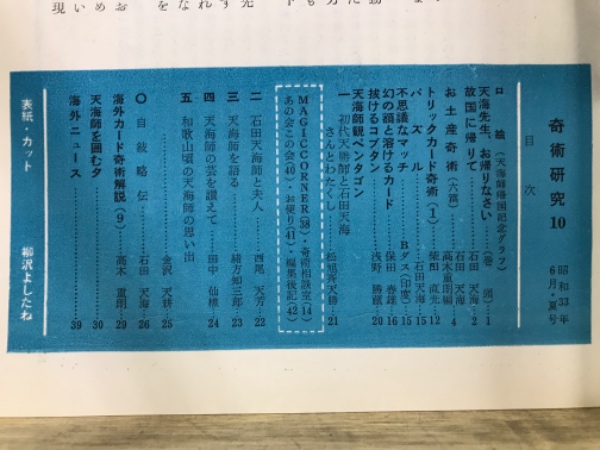 奇術研究 10
昭和33年
6月・夏号
目次
口絵(天海師帰国記念グラフ)
天海先生、お帰りなさい(巻頭)…1
故国に帰りて 石田 天海…2
お土産奇術(六篇) 高木重朗編…4
トリックカード奇術(1) 柴田 直光…12
パズル 石田天海…15
不思議なマッチ Bダス(印度)…15
幻の顔と溶けるカード 保田 春雄…16
抜けるコプタン 浅野 勝蔵…20
天海師観ペンタゴン
一 初代天勝師と石田天海
さんとわたくし 松旭斉天勝…21
MAGIC CORNER(38)・奇術相談室(14)
あの会この会(40)・お便り(41)・編集後記(42)
二 石田天海師と夫人 西尾 天芳…22
三 天海師を語る 緒方知三郎…23
四 天海師の芸を讃えて 田中 仙樵…24
五 和歌山頃の天海師の思い出
金沢 天耕…25
○ 自叙略伝 石田 天海…26
海外カード奇術解説(9) 高木 重朗…29
天海師を囲む夕…30
海外ニュース…39
表紙・カット 柳沢よしたね